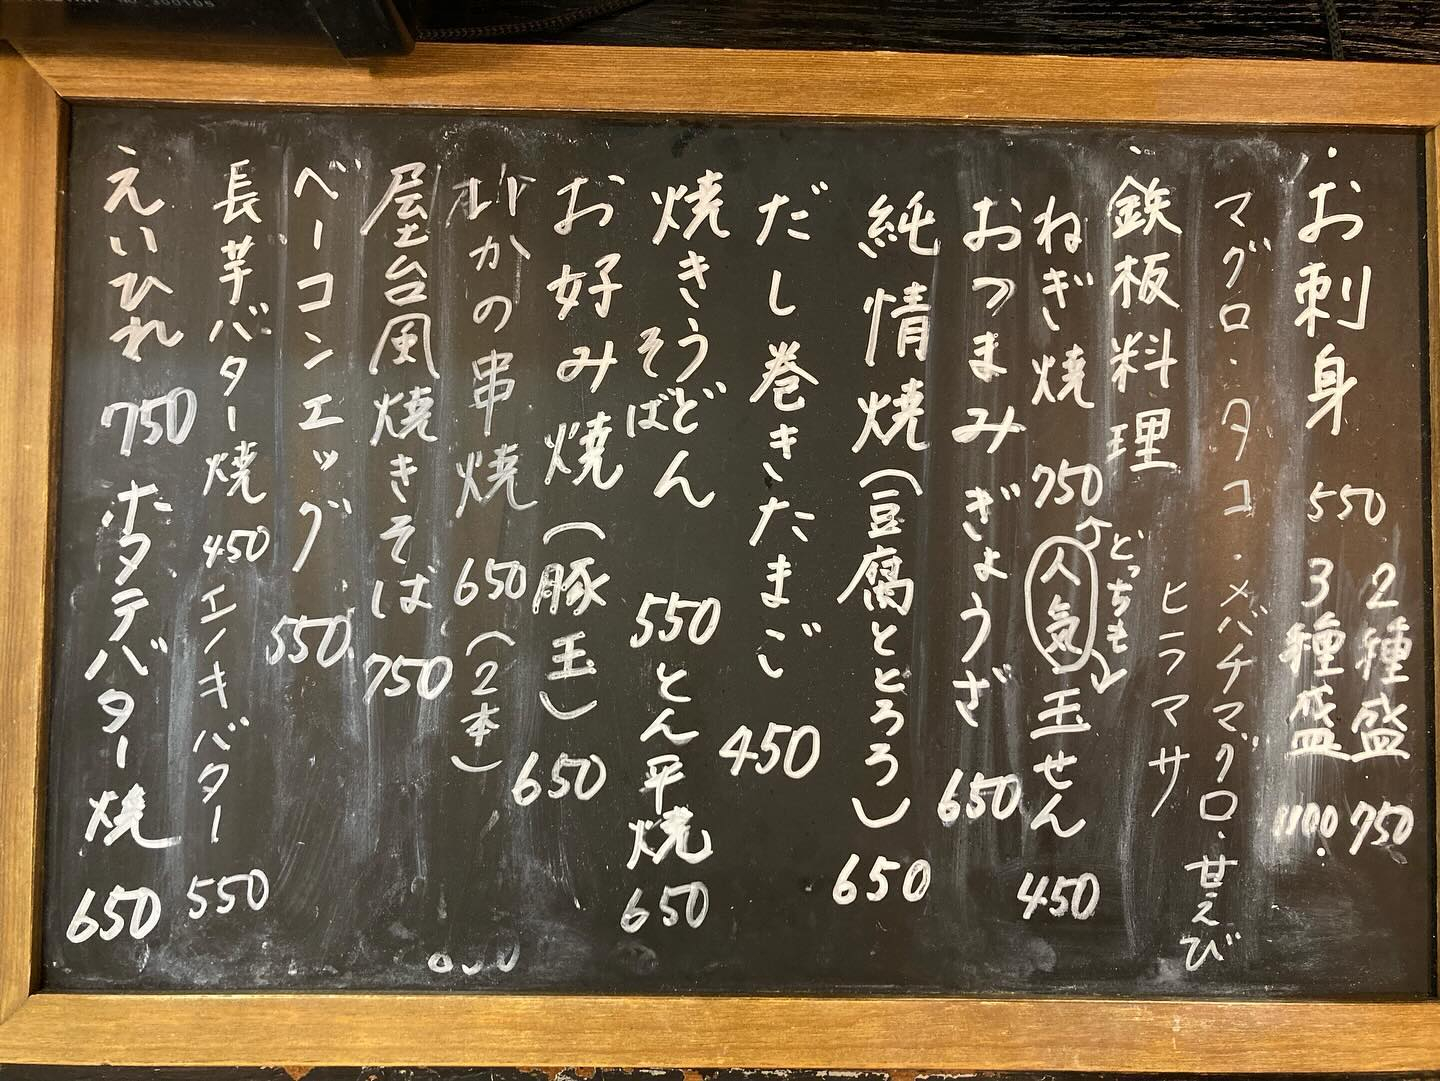 ・お刺身 550 2種盛 750
3種盛 1100.
マグロ・タコ・メバチマグロ・甘えび
ヒラマサ
・鉄板料理
どっちも
ねぎ焼 750 人気 玉せん 450
おつまみぎょうざ 650
純情焼(豆腐ととろろ) 650
だし巻きたまご 450
焼きうどん そば 550 とん平焼 650
お好み焼(豚玉) 650
いかの串焼 650 (2本)
屋台風焼きそば 750
ベーコンエッグ 550
長芋バター焼 450 エノキバター 550
えいひれ 750 ホタテバター焼 650